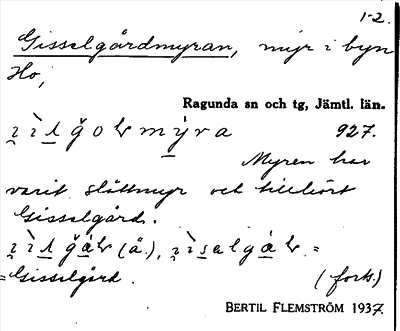 1-2.
Gisselgårdmyran, myr i byn
Ho,
Ragunda sn och tg, Jämtl. län.
927.
Myren har
varit slåttmyr och tillhört
Gisselgård.
=Gisselgård. (forts.)
BERTIL FLEMSTRÖM 1937.